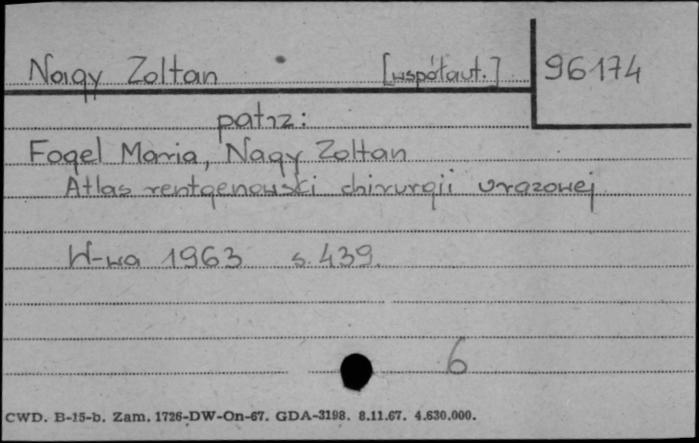 Nagy Zoltan [współaut.] 96174
patrz:
Fogel Maria, Nagy Zoltan
Atlas rentgenowski chirurgii urazowej
W-wa 1963 s. 439.
6
CWD. B-15-b. Zam. 1726-DW-On-67. GDA-3198. 8.11.67. 4.630.000.